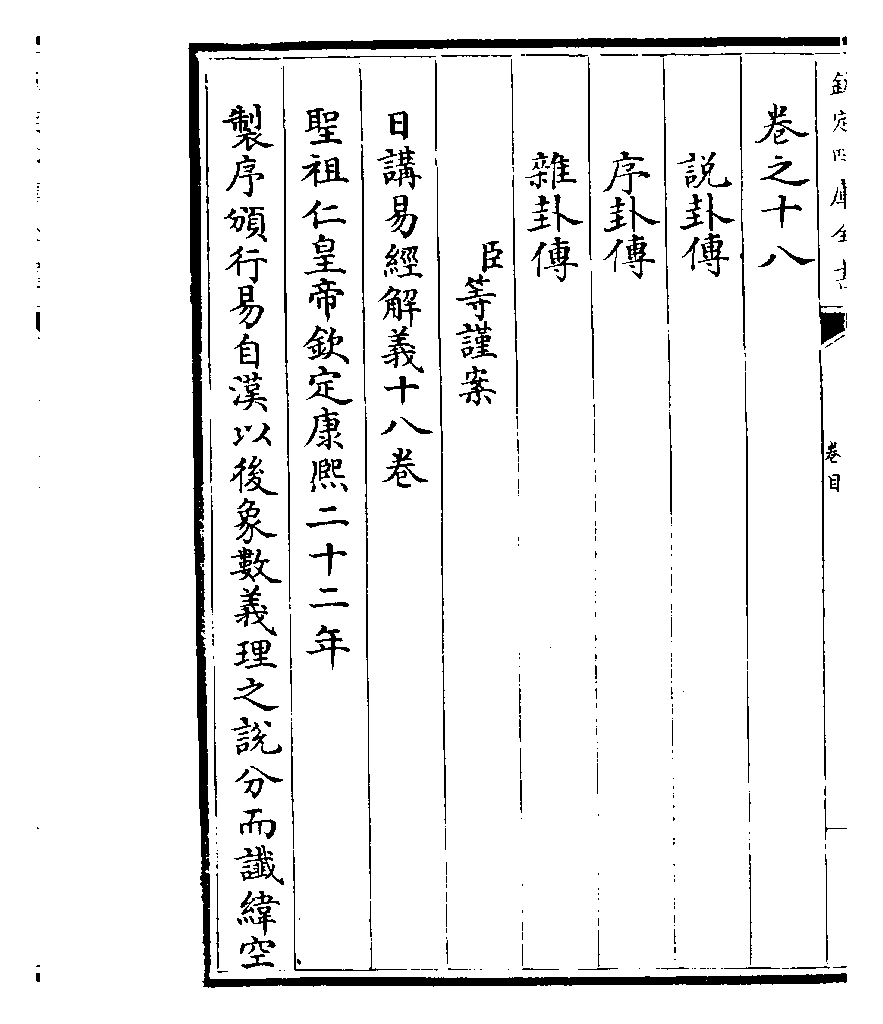 欽定四庫全書
卷目
卷之十八
說卦傳
序卦傳
雜卦傳
臣等謹案
日講易經解義十八卷
聖祖仁皇帝欽定康熙二十二年
製序頒行易自漢以後象數義理之說分而讖緯空